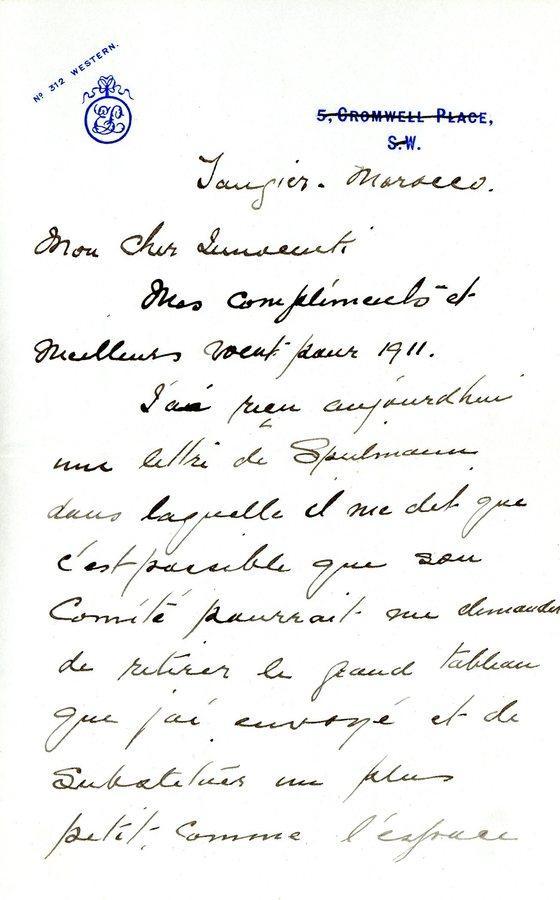 No 312 WESTERN.
5, CROMWELL PLACE,
S.W.
Tangier. Morocco.
Mon Cher Innocenti
Mes compliments et
Meilleurs voeux pour 1911.
J'ai reçu aujourdhui
une lettre de Spielmann
dans laquelle il me dit que
c'est possible que son
Comité pourrait me demander
de retirer le grand tableau
que j'ai envoyé et de
Substituer un plus
petit, comme l'espace